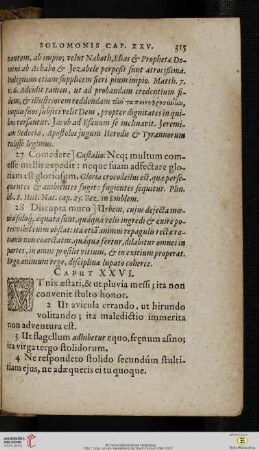 SOLOMONIS CAP. XXV. 315
tantem, ab impio; velut Naboth, Elias & Propheta Do-
mini ab Achabo & Jezabele perpessi sunt atrocissima.
Indignum etiam supplicem fieri pium impio. Matth. 7.
v. 6. Accidit tamen, ut ad probandam credentium fi-
dem, & illustriorem reddendam
impiis suos subjici velit Deus, propter dignitates in qui-
bus versantur. Jacob ad Esauum se inclinavit. Jeremi-
am Sedecia, Apostolos jugum Herodis & Tyrannorum
tulisse legimus.
27 Comedere] Castalio: Neq; multum com-
esse mellis expedit: neque suam adfectare glo-
riam est gloriosum. Gloria crocodilus est, quæ perse-
quentes & ambientes fugit: fugientes sequitur. Plin.
lib. 8. Hist. Nat. cap. 25. in Emblem.
28 Disrupta muro] Urbem, cujus dejecta mœ-
nia solóq, æquata sunt, quáqua velis ingredi & exire po-
test nihil est enim obstat: ita etiā animus repagulis rectæ ra-
tionis non coarctatus, quáqua fertur, dilabitur omnes in
partes, in omne prosilit vitium, & in exitium properat.
Ergo animum rege, disciplinæ lupato coherce.
CAPUT XXVI.
UT nix æstati, & ut pluvia messi; ita non
convenit stulto honor.
2 Ut avicula errando, ut hirundo
volitando; ita maledictio immerita
non adventura est.
3 Ut flagellum adhibetur equo, frenum asino;
ita virga tergo stolidorum.
4 Ne respondeto stolido secundùm stulti-
tiam ejus, ne adæqueris ei tu quoque.